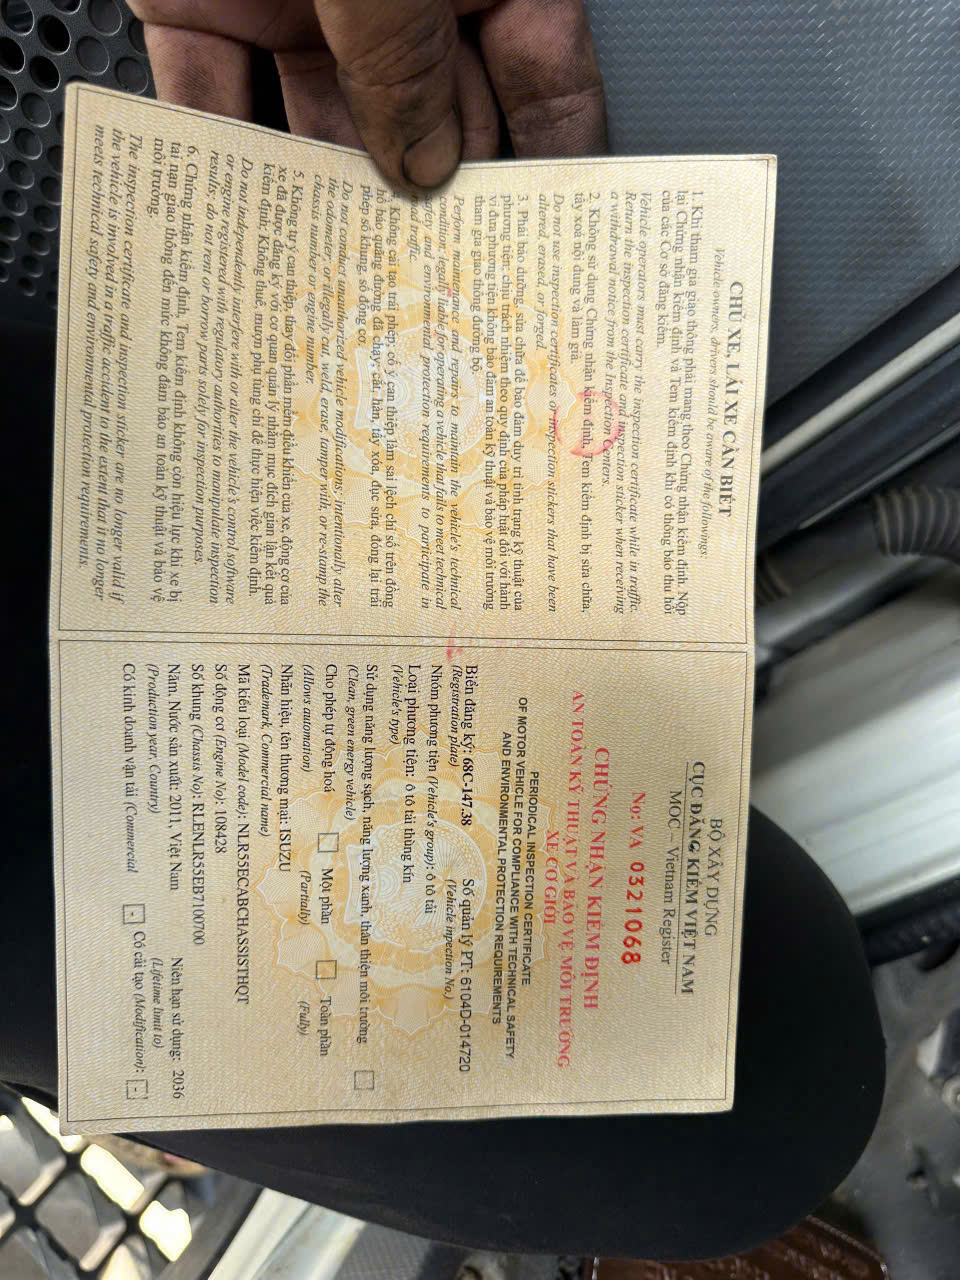 CHỦ XE, LÁI XE CẦN BIẾT
Vehicle owners, drivers should be aware of the followings:
1. Khi tham gia giao thông phải mang theo Chứng nhận kiểm định. Nộp
lại Chứng nhận kiểm định và Tem kiểm định khi có thông báo thu hồi
của các Cơ sở đăng kiểm.
Vehicle operators must carry the inspection certificate while in traffic.
Return the inspection certificate and inspection sticker when receiving
a withdrawal notice from the Inspection Centers.
2. Không sử dụng Chứng nhận kiểm định, Tem kiểm định bị sửa chữa,
tẩy xoá nội dung và làm giả.
Do not use inspection certificates or inspection stickers that have been
altered, erased, or forged.
3. Phải bảo dưỡng, sửa chữa để bảo đảm duy trì tình trạng kỹ thuật của
phương tiện; chịu trách nhiệm theo quy định của pháp luật đối với hành
vi đưa phương tiện không bảo đảm an toàn kỹ thuật và bảo vệ môi trường
tham gia giao thông đường bộ.
Perform maintenance and repairs to maintain the vehicle's technical
condition; legally liable for operating a vehicle that fails to meet technical
safety and environmental protection requirements to participate in
road traffic.
4. Không cải tạo trái phép; cố ý can thiệp làm sai lệch chỉ số trên đồng
hồ báo quãng đường đã chạy; cắt, hàn, tẩy xóa, đục sửa, đóng lại trái
phép số khung, số động cơ.
Do not conduct unauthorized vehicle modifications; intentionally alter
the odometer; or illegally cut, weld, erase, tamper with, or re-stamp the
chassis number or engine number.
5. Không tự ý can thiệp, thay đổi phần mềm điều khiển của xe, động cơ của
xe đã được đăng ký với cơ quan quản lý nhằm mục đích gian lận kết quả
kiểm định; Không thuê, mượn phụ tùng chỉ để thực hiện việc kiểm định.
Do not independently interfere with or alter the vehicle's control software
or engine registered with regulatory authorities to manipulate inspection
results; do not rent or borrow parts solely for inspection purposes.
6. Chứng nhận kiểm định, Tem kiểm định không còn hiệu lực khi xe bị
tai nạn giao thông đến mức không đảm bảo an toàn kỹ thuật và bảo vệ
môi trường.
The inspection certificate and inspection sticker are no longer valid if
the vehicle is involved in a traffic accident to the extent that it no longer
meets technical safety and environmental protection requirements.
BỘ XÂY DỰNG
CỤC ĐĂNG KIỂM VIỆT NAM
MOC - Vietnam Register
No: VA 0321068
CHỨNG NHẬN KIỂM ĐỊNH
AN TOÀN KỸ THUẬT VÀ BẢO VỆ MÔI TRƯỜNG
XE CƠ GIỚI
PERIODICAL INSPECTION CERTIFICATE
OF MOTOR VEHICLE FOR COMPLIANCE WITH TECHNICAL SAFETY
AND ENVIRONMENTAL PROTECTION REQUIREMENTS
Biển đăng ký: 68C-147.38 Số quản lý PT: 6104D-014720
(Registration plate) (Vehicle inpection No.)
Nhóm phương tiện (Vehicle's group): ô tô tải
Loại phương tiện: ô tô tải thùng kín
(Vehicle's type)
Sử dụng năng lượng sạch, năng lượng xanh, thân thiện môi trường
(Clean, green energy vehicle)
Cho phép tự động hoá Một phần Toàn phần
(Allows automation) (Partially) (Fully)
Nhãn hiệu, tên thương mại: ISUZU
(Trademark, Commercial name)
Mã kiểu loại (Model code): NLR55ECABCHASSISTHQT
Số động cơ (Engine No): 108428
Số khung (Chassis No): RLENLR55EB7100700
Năm, Nước sản xuất: 2011, Việt Nam Niên hạn sử dụng: 2036
(Production year, Country) (Lifetime limit to)
Có kinh doanh vận tải (Commercial - Có cải tạo (Modification): -